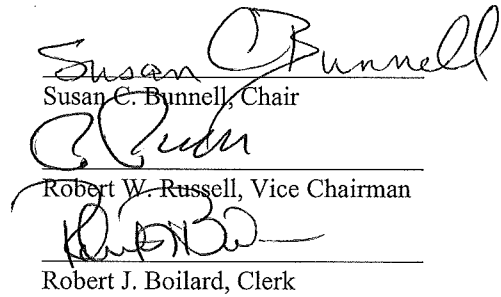 Susan C Bunnell
Susan C. Bunnell, Chair
Robert W. Russell, Vice Chairman
Robert J. Boilard, Clerk